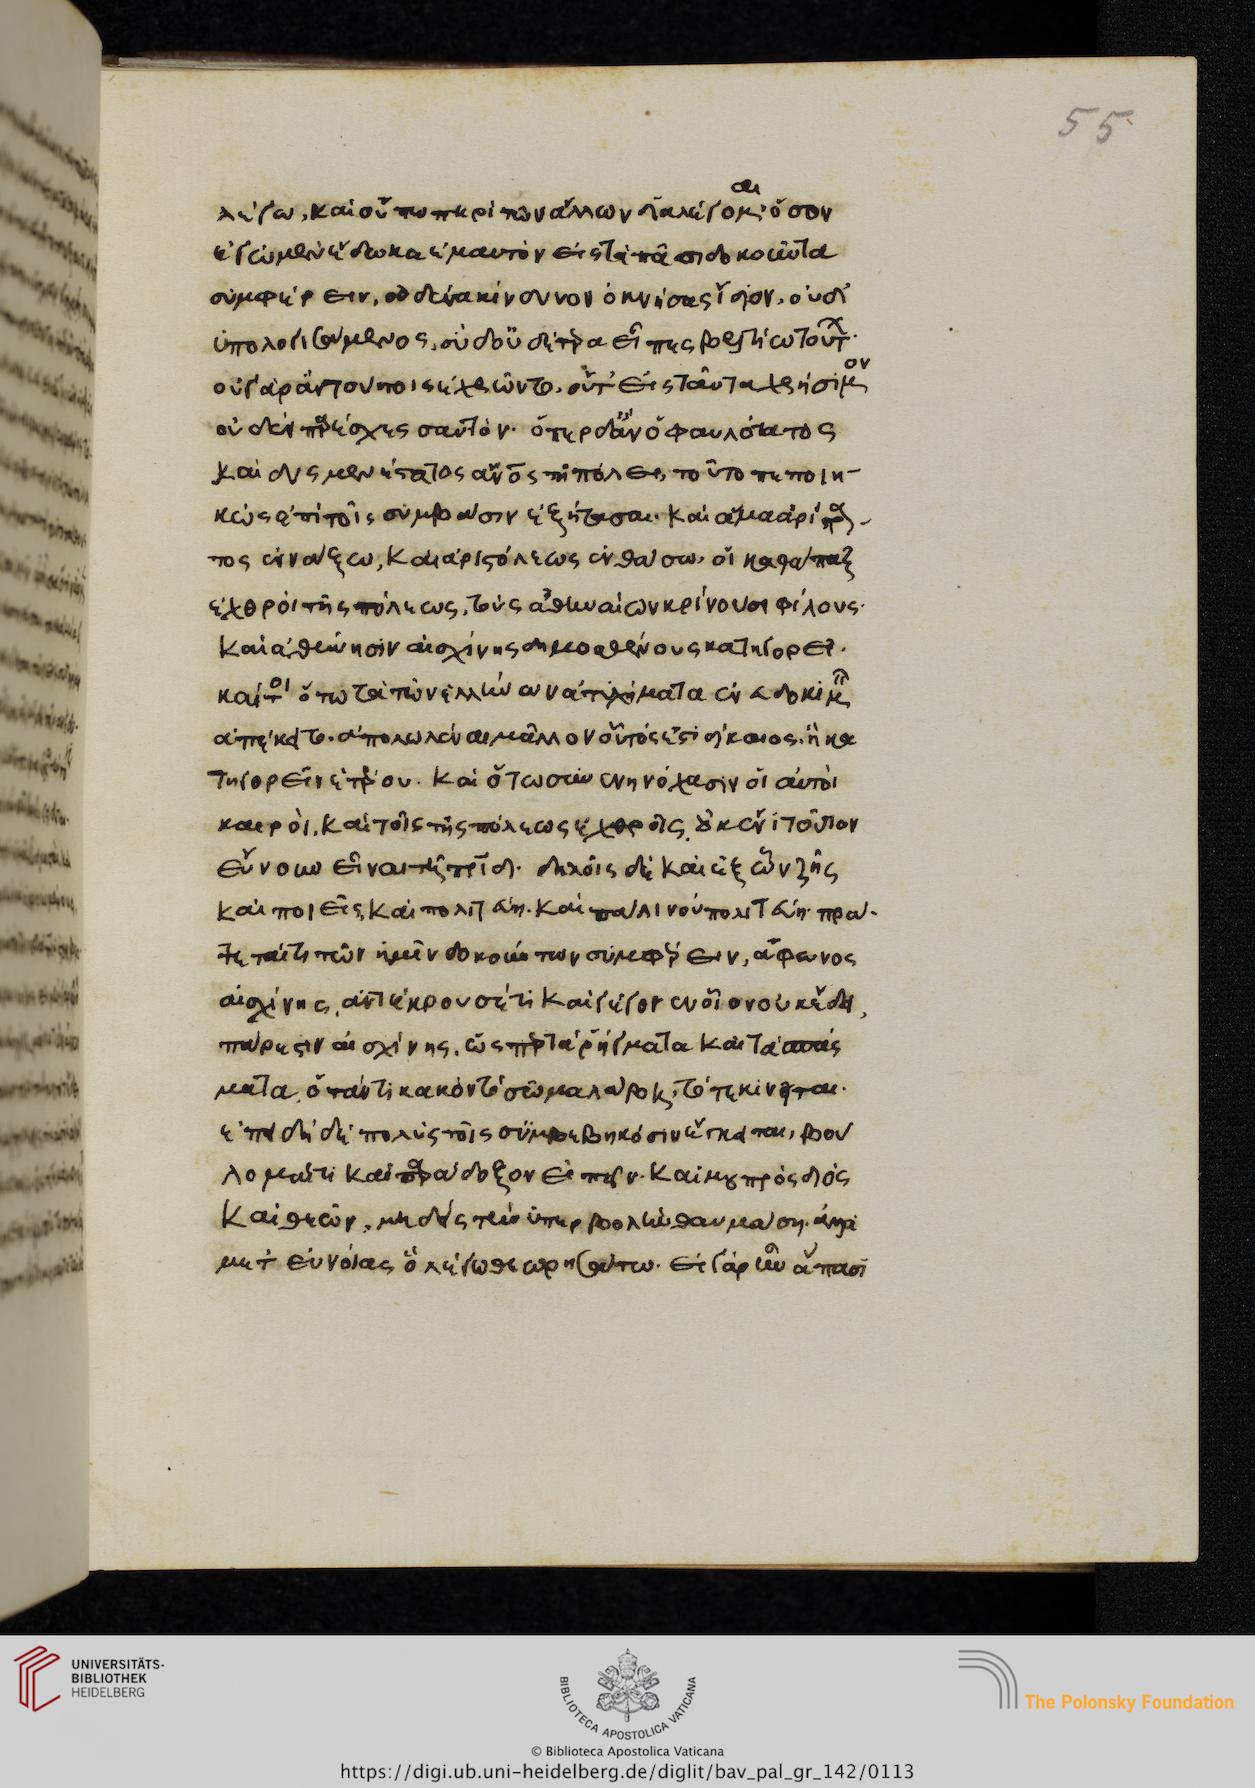 55
λέγω, καὶ οὔπω περὶ τῶν ἄλλων διαλέγομαι· ὅσον
ἐγὼ μὲν ἔδωκα ἐμαυτὸν εἰς τὰ πᾶσι δοκοῦντα
συμφέρειν, οὐδένα κίνδυνον ὀκνήσας ἴδιον, οὐδ'
ὑπολογισάμενος. σὺ δ' οὔθ' ἕτερα εἶπες βελτίω τούτων·
οὐ γὰρ ἂν τούτοις ἐχρῶντο. οὔτ' εἰς ταῦτα χρήσιμον
οὐδὲν παρέσχες σαυτόν. ὅπερ δ' ἂν ὁ φαυλότατος
καὶ δυσμενέστατος ἄνθρωπος τῇ πόλει, τοῦτο πεποιη-
κὼς ἐπὶ τοῖς συμβᾶσιν ἐξήτασαι. καὶ ἅμα ἀρίστρα-
τος ἐν νάξω, καὶ ἀριστόλεως ἐν θάσω, οἱ καθάπαξ
ἐχθροὶ τῆς πόλεως, τοὺς ἀθηναίων κρίνουσι φίλους·
καὶ ἀθήνησιν αἰσχίνης δημοσθένους κατηγορεῖ.
καίτοι ὅτω τὰ τῶν ἑλλήνων ἀτυχήματα ἐνευδοκιμεῖν
ἀπέκειτο. ἀπολωλέναι μᾶλλον οὗτός ἐστι δίκαιος. ἢ κα
τηγορεῖν ἑτέρου. καὶ ὅτω συνενηνόχασιν οἱ αὐτοὶ
καιροὶ, καὶ τοῖς τῆς πόλεως ἐχθροῖς, οὐκ ἔνι τοῦτον
εὔνουν εἶναι τῇ πατρίδι. δηλοῖς δὲ καὶ ἐξ ὧν ζῇς
καὶ ποιεῖς, καὶ πολιτεύη. καὶ πάλιν οὐ πολιτεύη. πράτ-
τεταί τι τῶν ἡμῖν δοκούντων συμφέρειν, ἄφωνος
αἰσχίνης, ἀντέκρουσέ τι καὶ γέγονεν οἷον οὐκ ἔδει,
πάρεστιν αἰσχίνης. ὥσπερ τὰ ῥήγματα καὶ τὰ σπάς
ματα, ὅταν τι κακὸν τὸ σῶμα λάβῃ, τότε κινεῖται.
ἐπειδὴ δὲ πολὺς τοῖς συμβεβηκόσιν ἔγκειται, βού
λομαί τι καὶ παράδοξον εἰπεῖν. καί μου πρὸς διός
καὶ θεῶν, μηδεὶς τὴν ὑπερβολὴν θαυμάση. ἀλλὰ
μετ' εὐνοίας ὃ λέγω θεωρησάτω. εἰ γὰρ ἦν ἅπασι
UNIVERSITÄTS-
BIBLIOTHEK
HEIDELBERG
BIBLIOTECA APOSTOLICA VATICANA
The Polonsky Foundation
© Biblioteca Apostolica Vaticana
https://digi.ub.uni-heidelberg.de/diglit/bav_pal_gr_142/0113